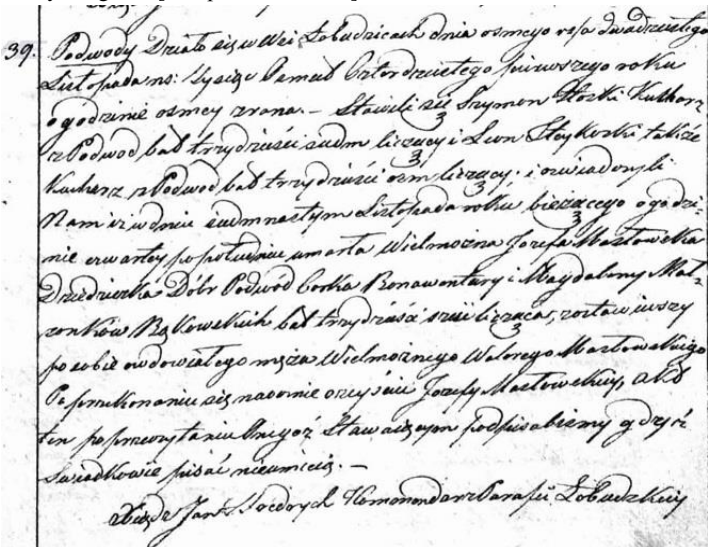 39. Podwody Działo się w Wsi Łobudzicach dnia osmego ra/a dwudziestego
Listopada ns: Tysiąc Osmset Czterdziestego pierwszego roku
o godzinie osmey zrana. – Stawili się Szymon Kucharz
z Podwod lat trzydzieści siedm liczący i Leon także
Kucharz z Podwod lat trzydzieści osm liczący i oswiadczyli
Nam iż w dniu siedmnastym Listopada roku bieżącego o godzi=
nie czwartey popołudniu umarła Wielmozna Jozefa Masłowska
Dziedziczka Dóbr Podwod Corka Bonawentury i Magdaleny Mał=
zonków Rąkowskich lat trzydzieści sześć licząca, zostawiwszy
po sobie owdowiałego męża Wielmoznego Walerego Masłowskiego
Po przekonaniu się naocznie o zejściu Jozefy Masłowskiey, akt
ten po przeczytaniu onegoż Stawaiącym podpisaliśmy gdyż
Swiadkowie pisać nieumieią. –
Xiądz Jan Kommendarz Parafii Łobudzkiey